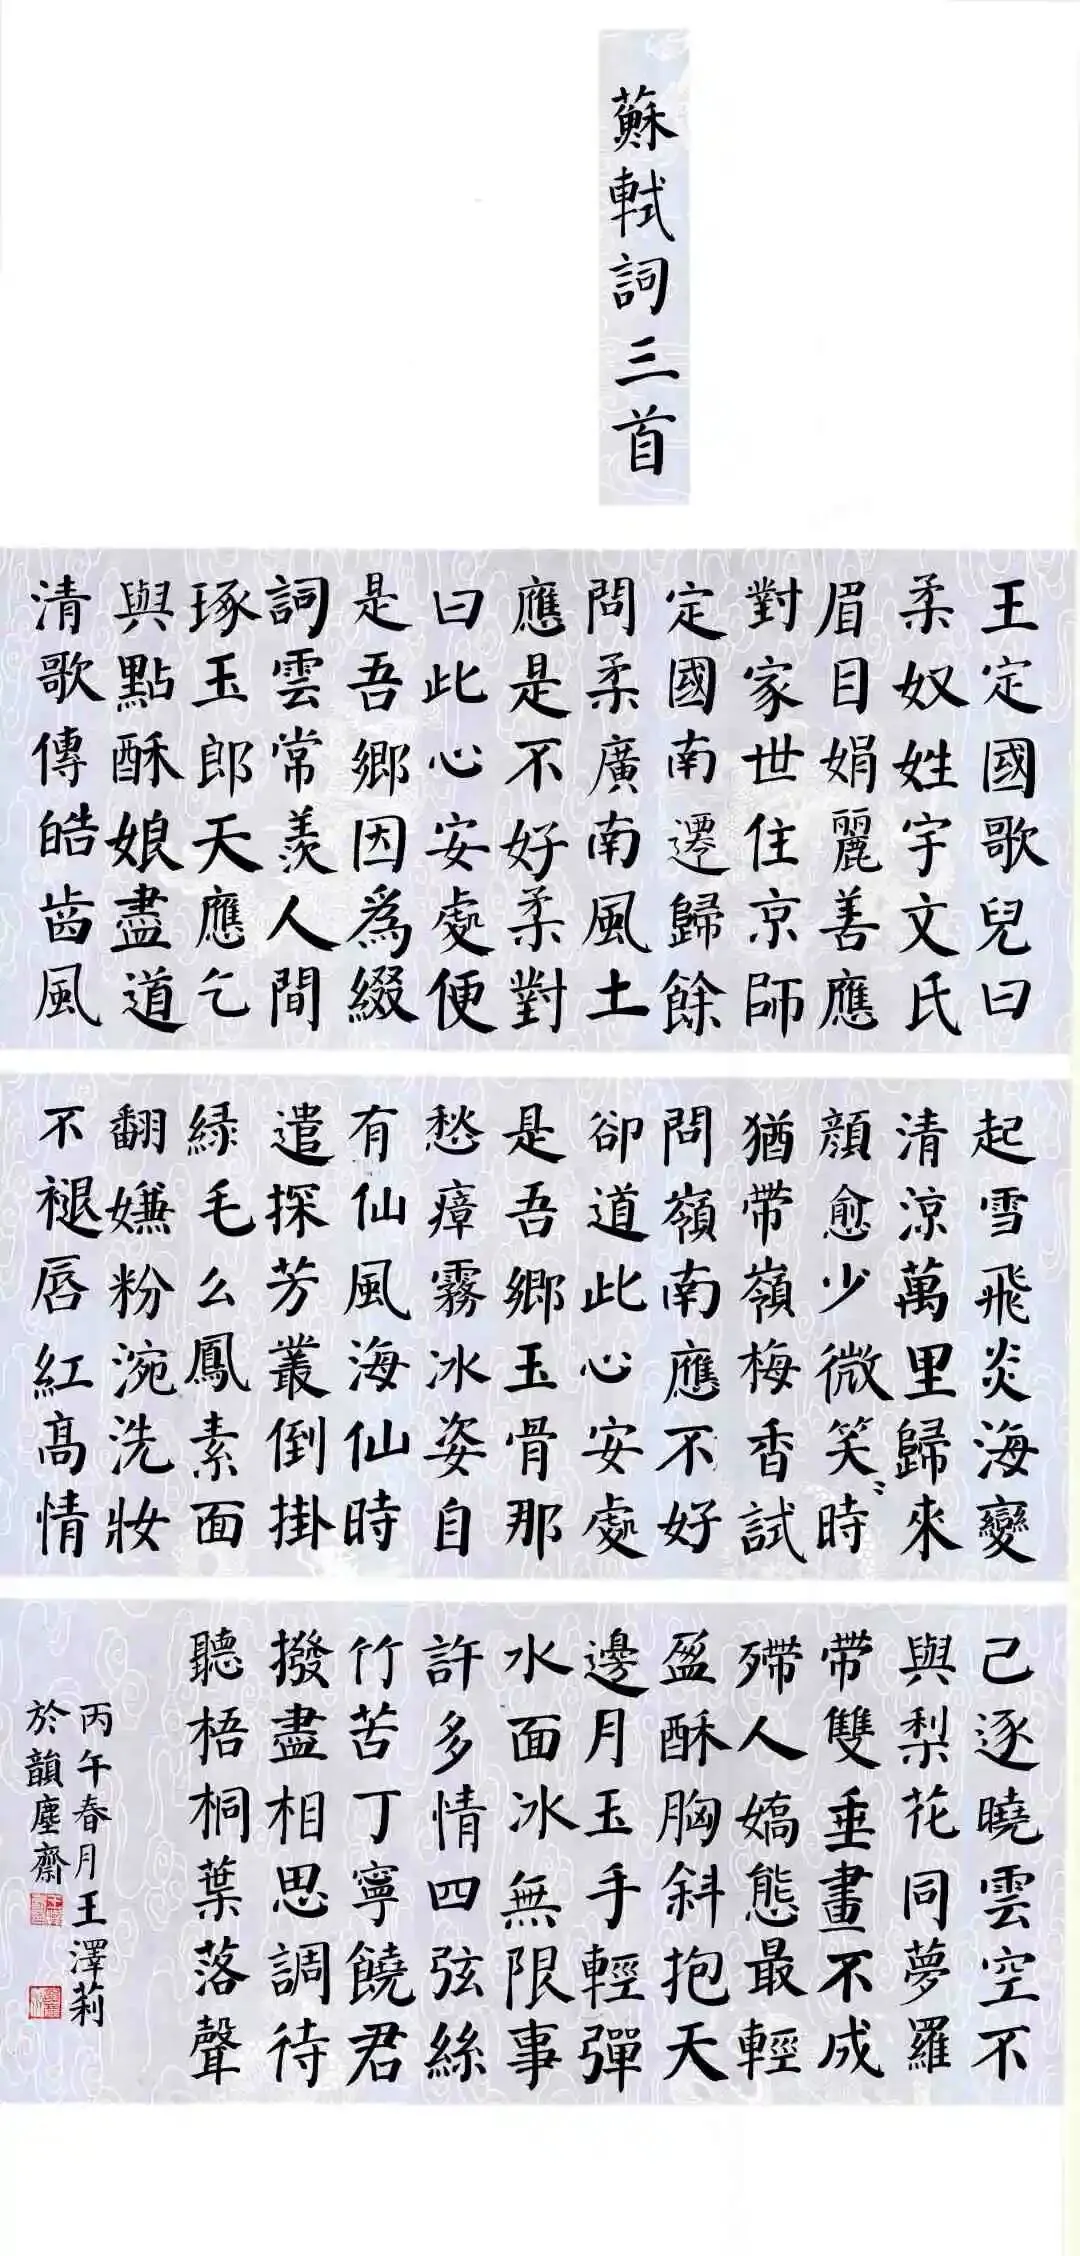 蘇軾詞三首
王定國歌兒曰
柔奴姓宇文氏
眉目娟麗善應
對家世住京師
定國南遷歸餘
問柔廣南風土
應是不好柔對
曰此心安處便
是吾鄉因爲綴
詞雲常羨人間
琢玉郎天應乞
與點酥娘盡道
清歌傳皓齒風
起雪飛炎海變
清涼萬里歸來
顏愈少微笑〻時
猶帶嶺梅香試
問嶺南應不好
卻道此心安處
是吾鄉玉骨那
愁瘴霧冰姿自
有仙風海仙時
遣探芳叢倒掛
綠毛么鳳素面
翻嫌粉涴洗妝
不褪唇紅高情
已逐曉雲空不
與梨花同夢羅
帶雙垂畫不成
殢人嬌態最輕
盈酥胸斜抱天
邊月玉手輕彈
水面冰無限事
許多情四弦絲
竹苦丁寧饒君
撥盡相思調待
聽梧桐葉落聲
丙午春月王澤莉
於韻塵齋